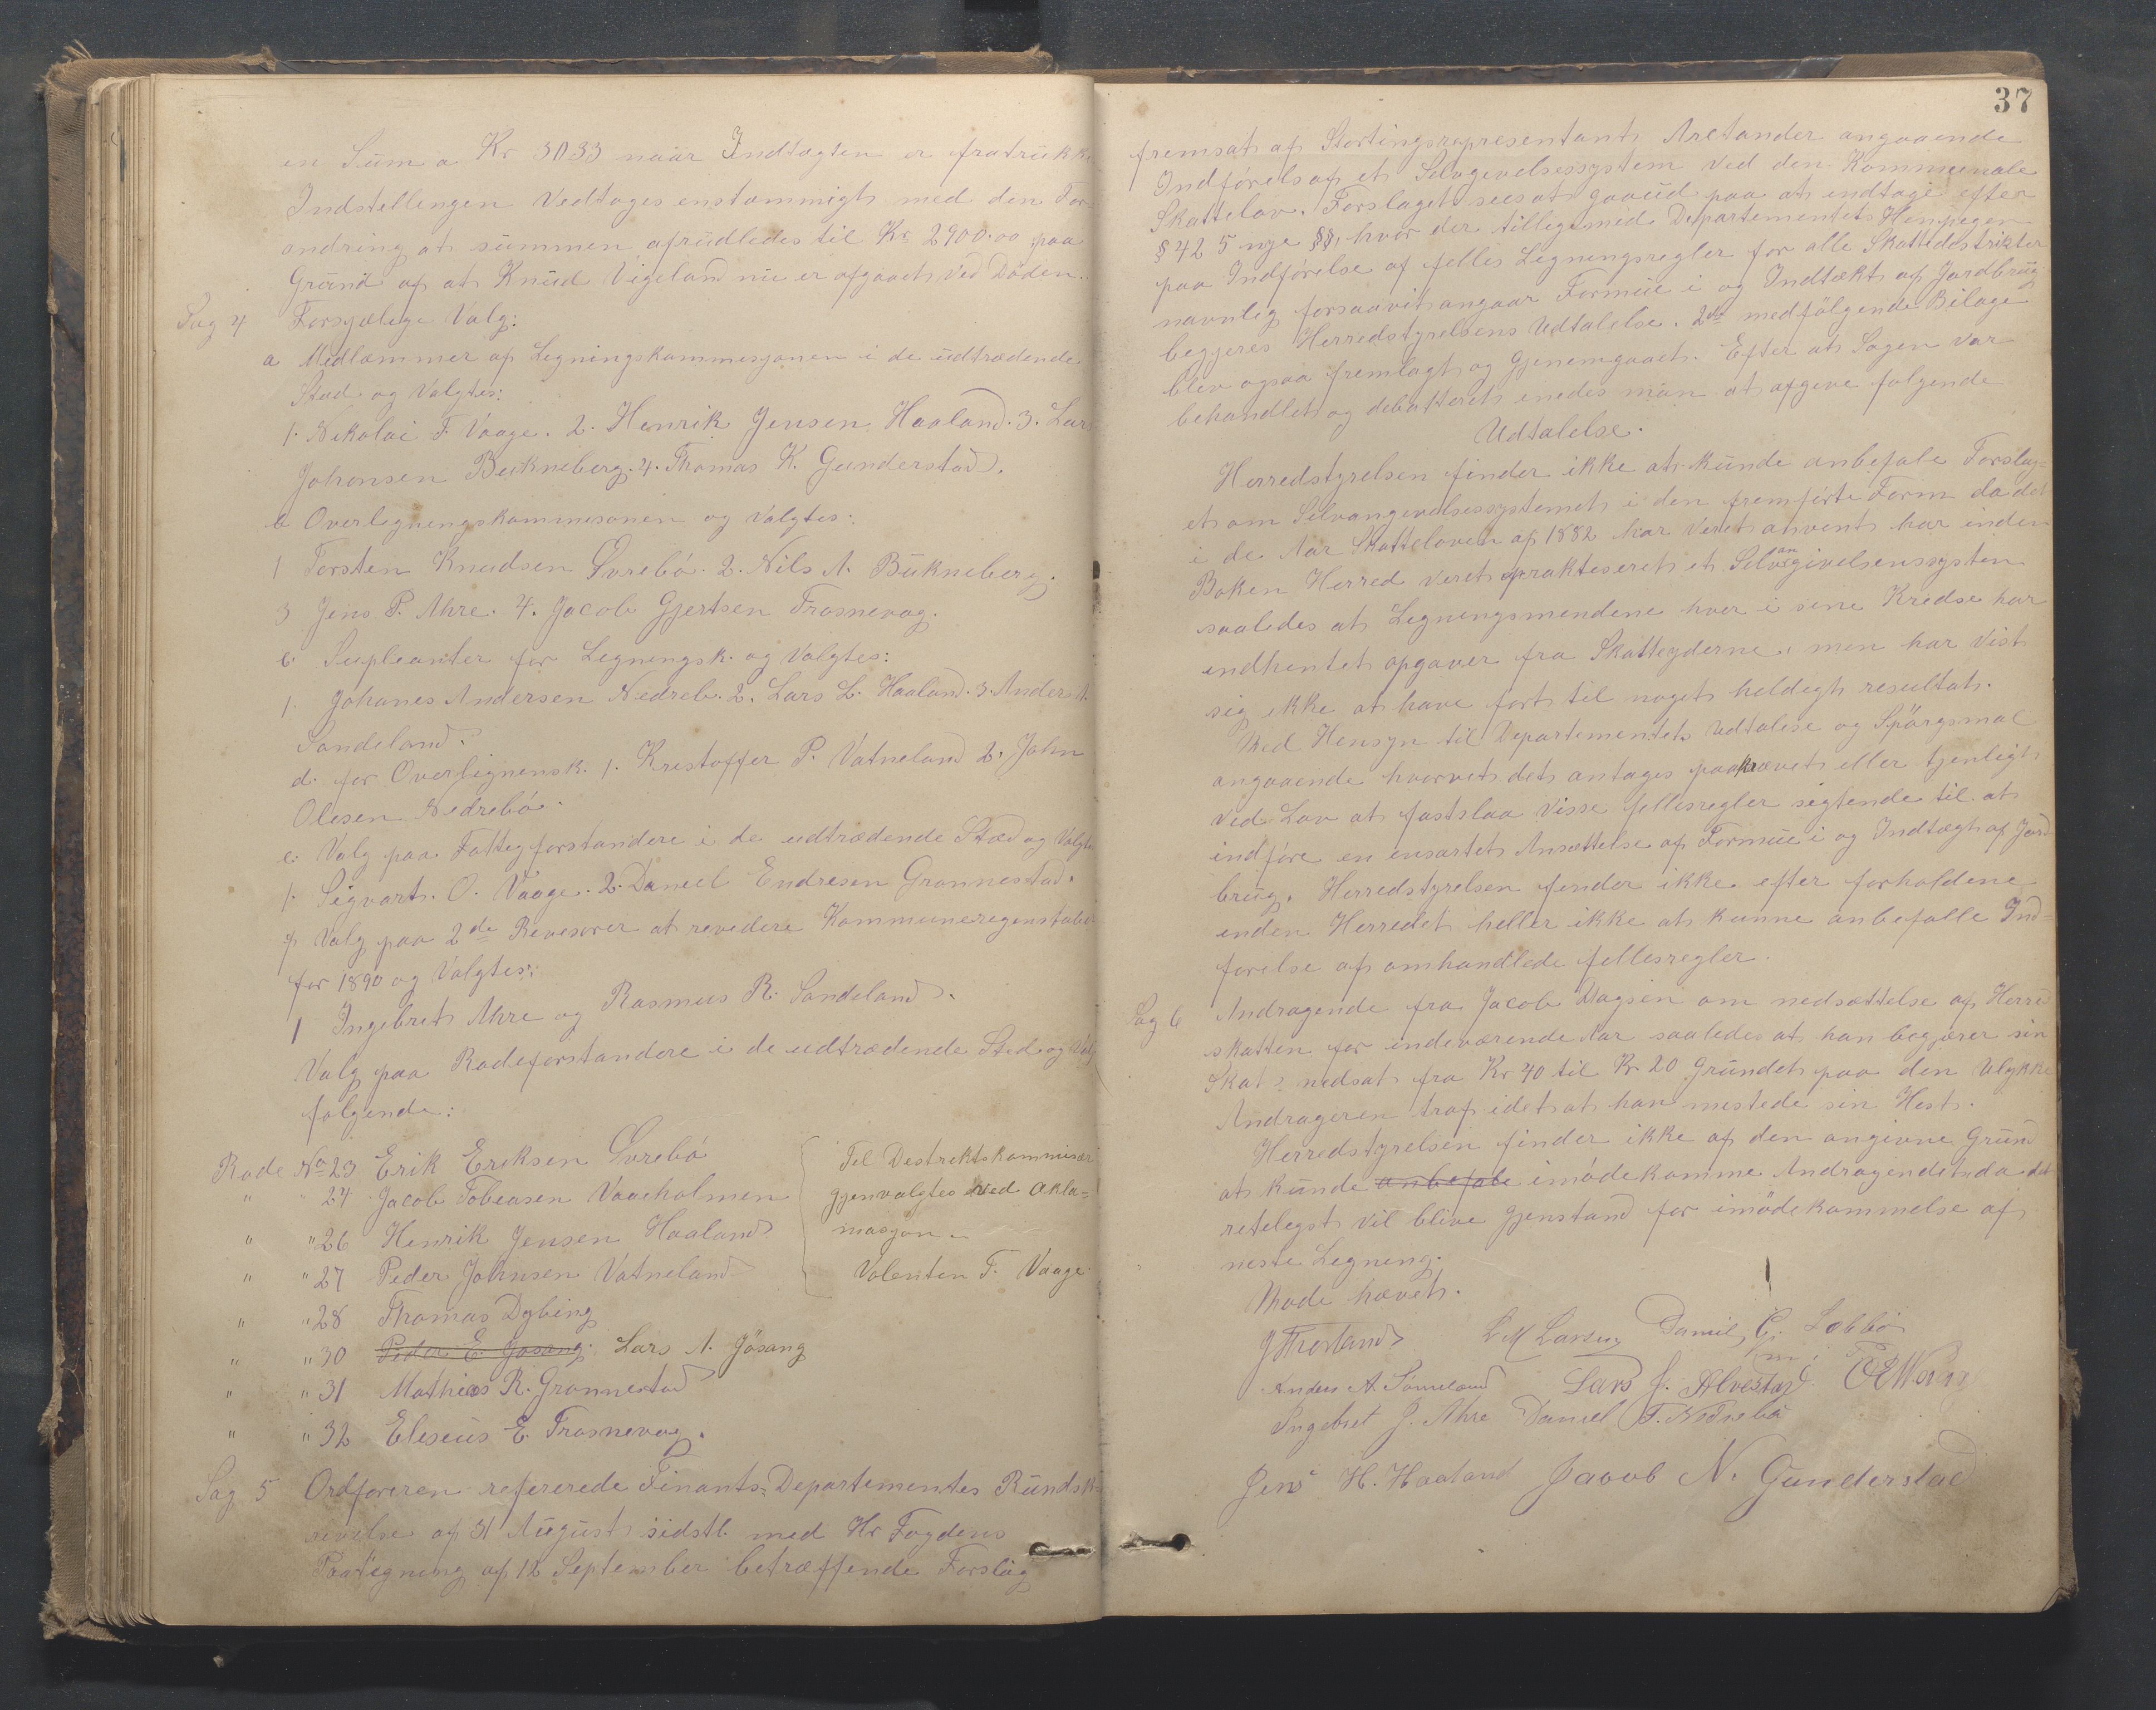 en Sum a Kr 3033 naar Indtægten er fratrukk
Indstellingen Vedtages enstemmigt med den For
andring at summen afrudledes til Kr 2900.00 paa
Grund af at Knud Vigeland nu er afgaaet Ved Döden.
Sag 4 Forsjælige Valg:
a Medlæmmer af Legningskommesjonen i de udtrædende
Stæd og Valgtes:
1. Nikolai F. Vaage. 2. Henrik Jensen Haaland. 3. Lars
Johonsen Bukneberg. 4. Thomas K. Gunderstad.
b Overlegningskommesonen og Valgtes:
1 Torsten Knudsen Övrebö. 2. Nils A. Bukneberg.
3 Jens P. Ahre. 4. Jacob Gjertsen Frosnevag.
c. Supleanter for Legningsk. og Valgtes:
1. Johanes Andersen Nedreb. 2. Lars L. Haaland. 3. Anders A.
Sandeland.
d. for Overlignensk. 1. Krestoffer P. Vatneland 2. John
Olesen Nedrebö.
e. Valg paa Fattegforstandere i de udtrædende Stæd og Valgte
1. Sigvart. O. Vaage. 2. Daneel Endresen Gronnestad.
f Valg paa 2de Revesorer at revedere Kommuneregenskabe
for 1890 og Valgtes:
1 Ingebret Ahre og Rasmus R. Sandeland.
Valg paa Rodeforstandere i de udtrædende Sted og Valg
folgende:
Rode No 23 Erik Ereksen Övrebö
" " 24 Jacob Tobeasen Vaageholmen
" " 26 Henrik Jensen Haaland
" " 27 Peder Johnsen Vatneland
" " 28 Thomas Dybing
" " 30 Peder E. Josang. Lars A. Jösang
" " 31 Mathias R. Gronnestad
" " 32 Eleseus E. Frosnevag.
Tel Destrektskommisær
gjenvalgtes ved Akla=
masjon.
Valenten F. Vaage.
Sag 5 Ordforeren refererede Finants=Departementes Rundsk
revelse af 31 August sidstl. med Hr Fogdens
Paategning af 12 September betræffende Forslag
37
fremsat af Stortingsrepresentant Aretander angaaende
Indförels af et Selvgevelsessystem Ved den Kommunale
Skattelov. Forslaget sees at gaa ud paa at endtage efter
§ 42 5 nye §§, hvor der tilligemed Departementets Henpegen
paa Indförelse af felles Legningsregler for alle Skattedestrikter
navnleg forsaavit angaar Formue i og Indtækt af Jordbrug
begjeres Herredstyrelsens Udtalelse. 2de medfölgende Bilage
blev ogsaa fremlagt og Gjenemgaaet. Efter at Sagen var
behandlet og debatteret enedes man at afgeve folgende
Udtalelse.
Herredstyrelsen finder ikke at kunde anbefale Forslag=
et om Selvangevelsessystemet i den fremförte Form da det
i de Aar Skatteloven af 1882 har Veret anvent har inden
Boken Herred veret prakteseret et Selvangivelsenssystem
saaledes at Legningsmendene hver i sine Kredse har
endhentet opgaver fra Skatteyderne, men har Vist
sig ikke at have fort til noget heldegt resultat.
Med Hensyn til Departementets Udtalese og Spörgsmal
angaaende hvorvet det antages paakrævet eller tjenligt
Ved Lov at fastslaa Visse fellesregler sigtende til at
indföre en ensartet Ansættelse af Formue i og Indtægt af Jord
brug. Herredstyrelsen fender ikke efter forholdene
enden Herredet heller ikke at kunne anbefalle Ind=
forelse af omhandlede fellesregler.
Sag 6 Andragende fra Jacob Dagsen om nedsættelse af Herreds
skatten for endeværende Aar saaledes at han begjærer sin
Skat nedsat fra Kr 40 til Kr 20 Grundet paa den Ulykke
Andrageren traf idet at han mestede sin Hest.
Herredstyrelsen finder ikke af den angivne Grund
at kunde anbefale imödekomme Andragendet da det
retelegst Vil blive Gjenstand for imödekommelse af
neste Legning.
Mode hævet.
L M Larsen Daniel C.
Anders A. Lars J. Alvestad
Ingebret J. Ahre Daniel T. Nedrebö
Jens H. Haaland Jacob N. Gunderstad